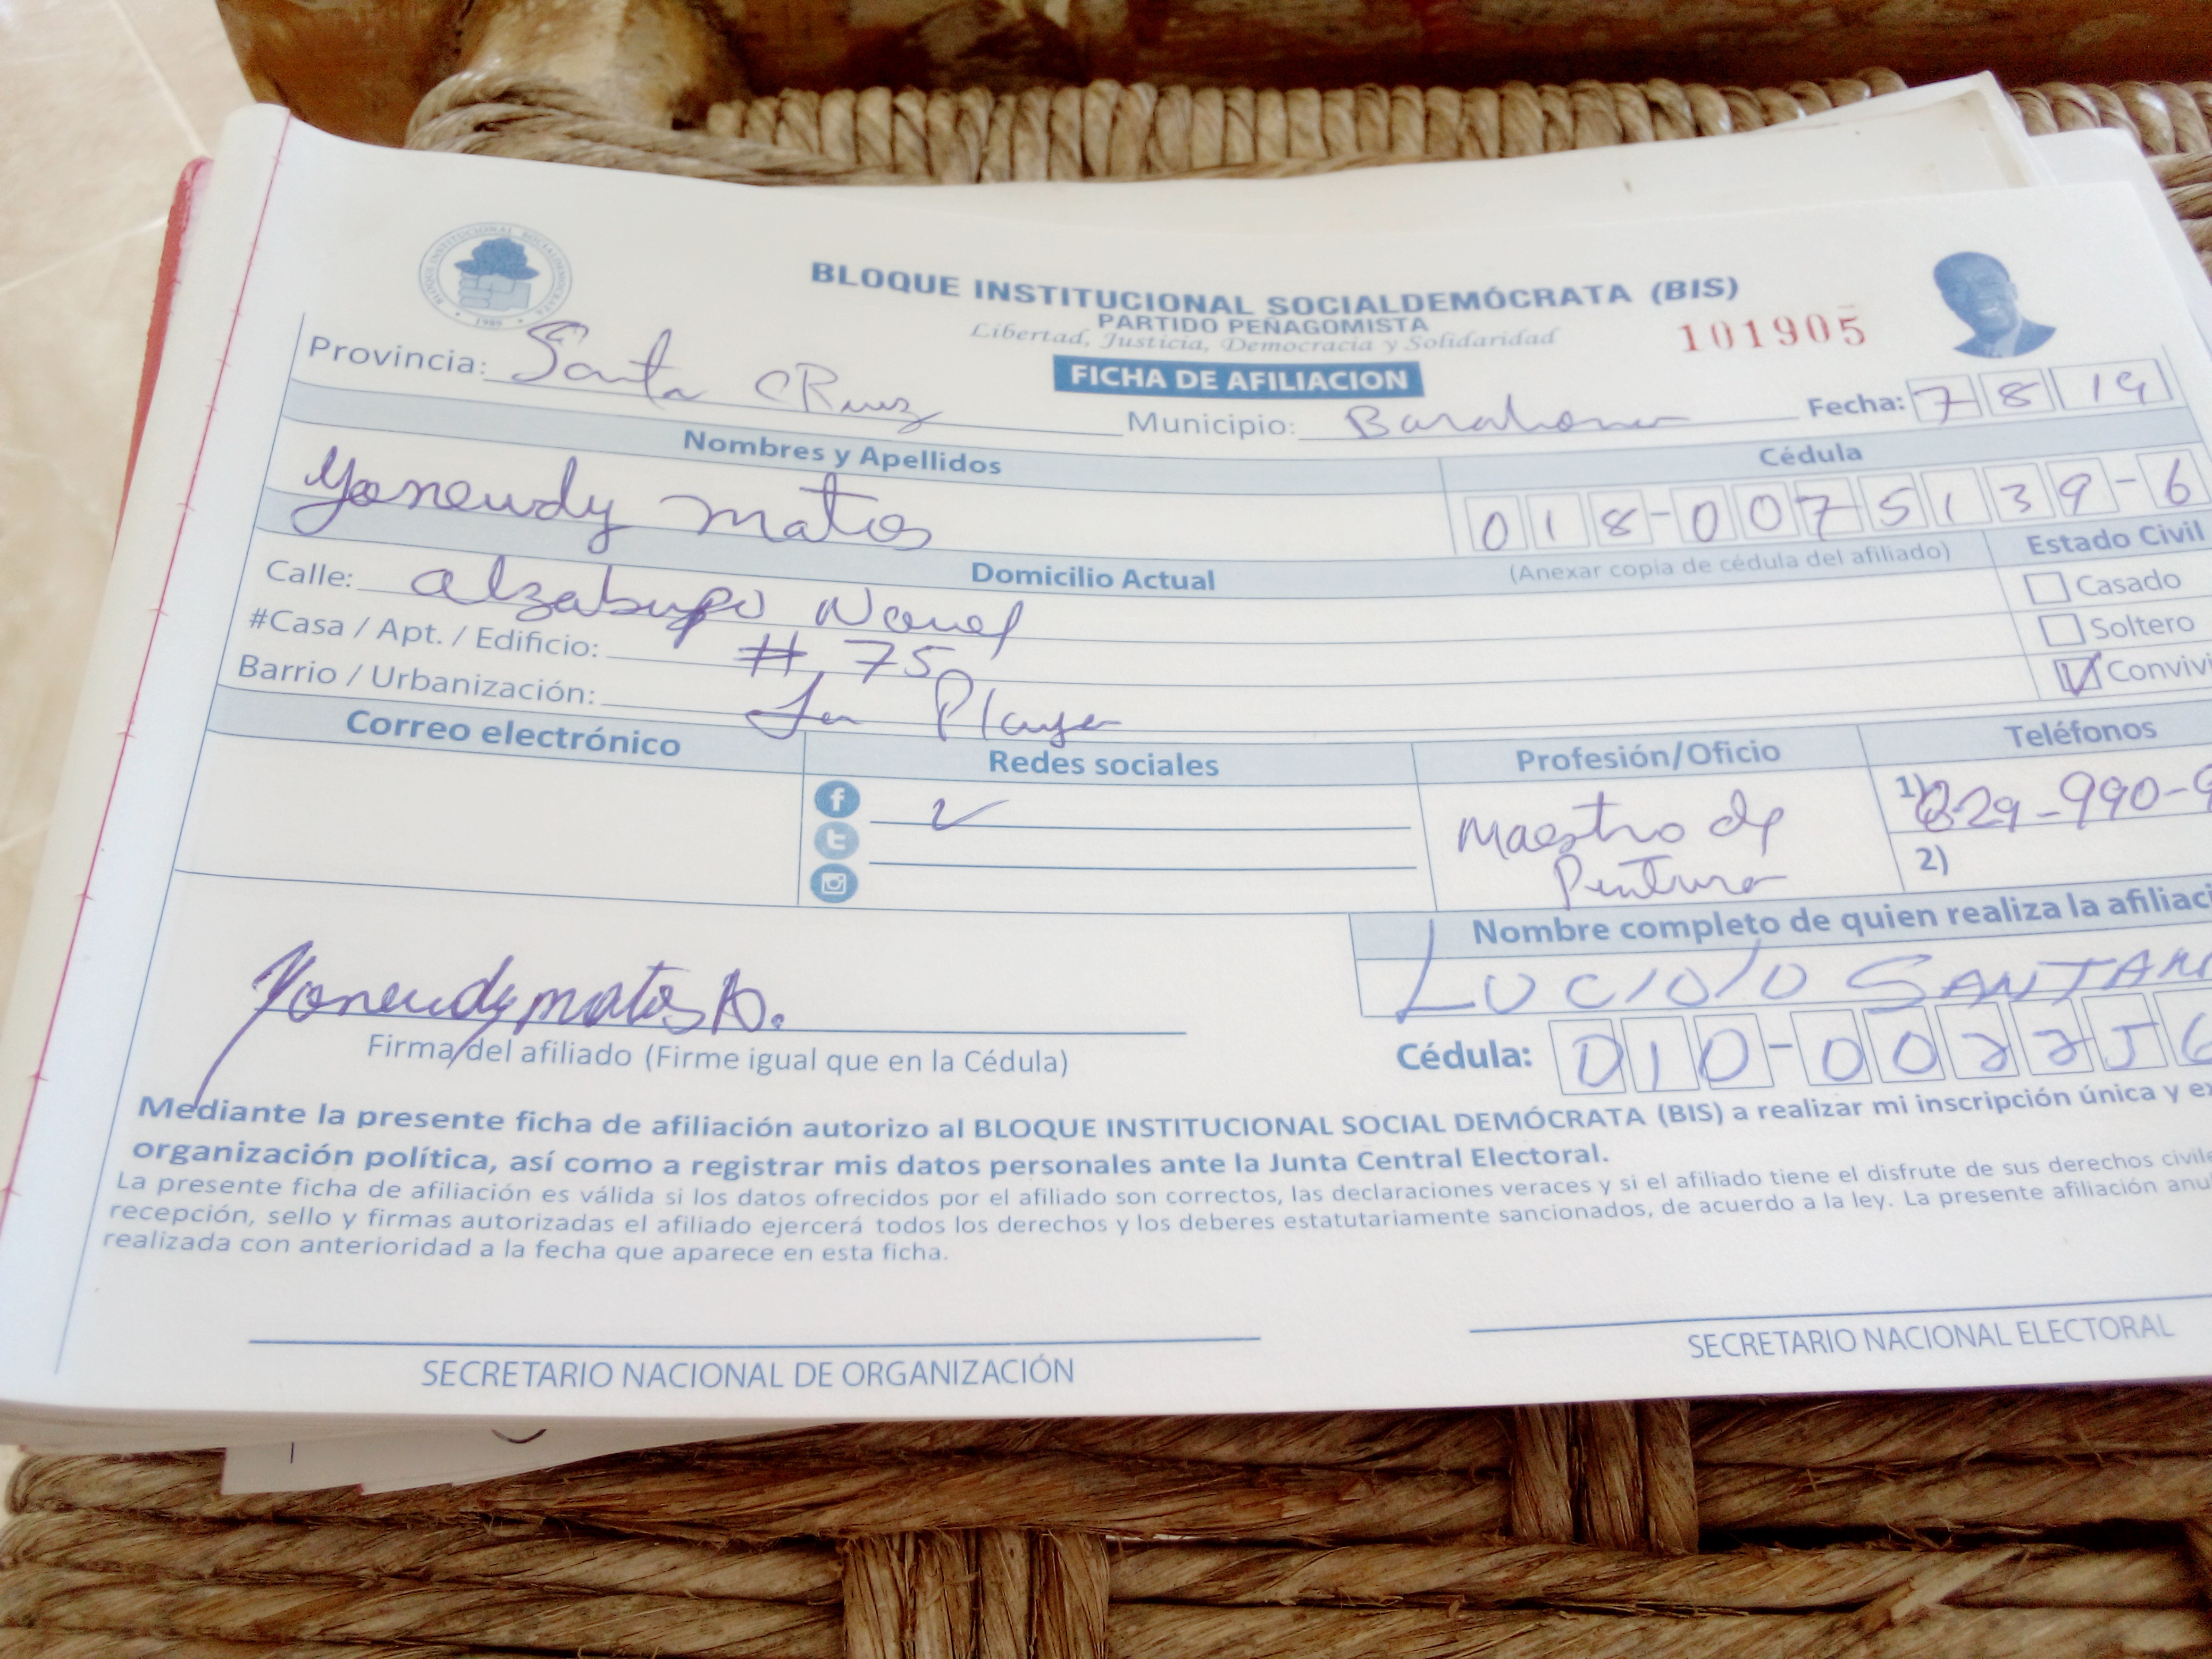 BLOQUE INSTITUCIONAL SOCIALDEMÓCRATA
1989
BLOQUE INSTITUCIONAL SOCIALDEMÓCRATA (BIS)
PARTIDO PEÑAGOMISTA
Libertad, Justicia, Democracia y Solidaridad
101905
FICHA DE AFILIACION
Provincia: Santa CRuz Municipio: Barahona Fecha: 7 8 19
Nombres y Apellidos Cédula
Yoneudy matos 018-0075139-6
Domicilio Actual (Anexar copia de cédula del afiliado) Estado Civil
Calle:
#Casa / Apt. / Edificio: # 75
Barrio / Urbanización: La Playa
Casado
Soltero
Convivi
Correo electrónico Redes sociales Profesión/Oficio Teléfonos
Maestro de
Pintura
1) 829-990-9
2)
Nombre completo de quien realiza la afiliaci
LUCIO SANTANA
Yoneudy matos D.
Firma del afiliado (Firme igual que en la Cédula)
Cédula: 010-002256
Mediante la presente ficha de afiliación autorizo al BLOQUE INSTITUCIONAL SOCIAL DEMÓCRATA (BIS) a realizar mi inscripción única y ex
organización política, así como a registrar mis datos personales ante la Junta Central Electoral.
La presente ficha de afiliación es válida si los datos ofrecidos por el afiliado son correctos, las declaraciones veraces y si el afiliado tiene el disfrute de sus derechos civile
recepción, sello y firmas autorizadas el afiliado ejercerá todos los derechos y los deberes estatutariamente sancionados, de acuerdo a la ley. La presente afiliación anul
realizada con anterioridad a la fecha que aparece en esta ficha.
SECRETARIO NACIONAL DE ORGANIZACIÓN
SECRETARIO NACIONAL ELECTORAL